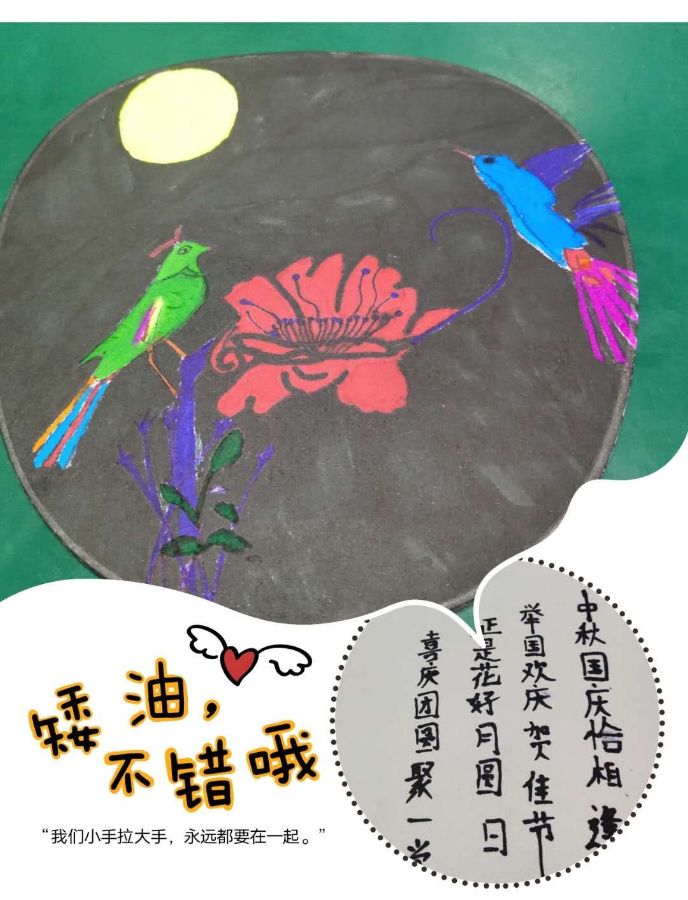 矮油，
不错哦
“我们小手拉大手，永远都要在一起。”
中秋国庆恰相逢
举国欢庆贺佳节
正是花好月圆日
喜庆团圆聚一堂